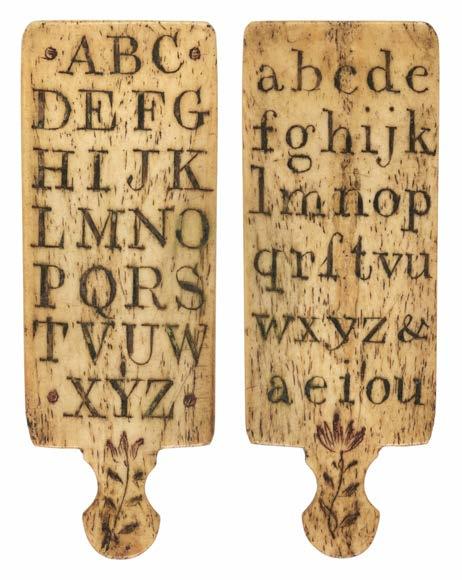 ABC
DEFG
HIJK
LMNO
PQRS
TVUW
XYZ
abcde
fghijk
lmnop
qrſtvu
wxyz&
aeiou